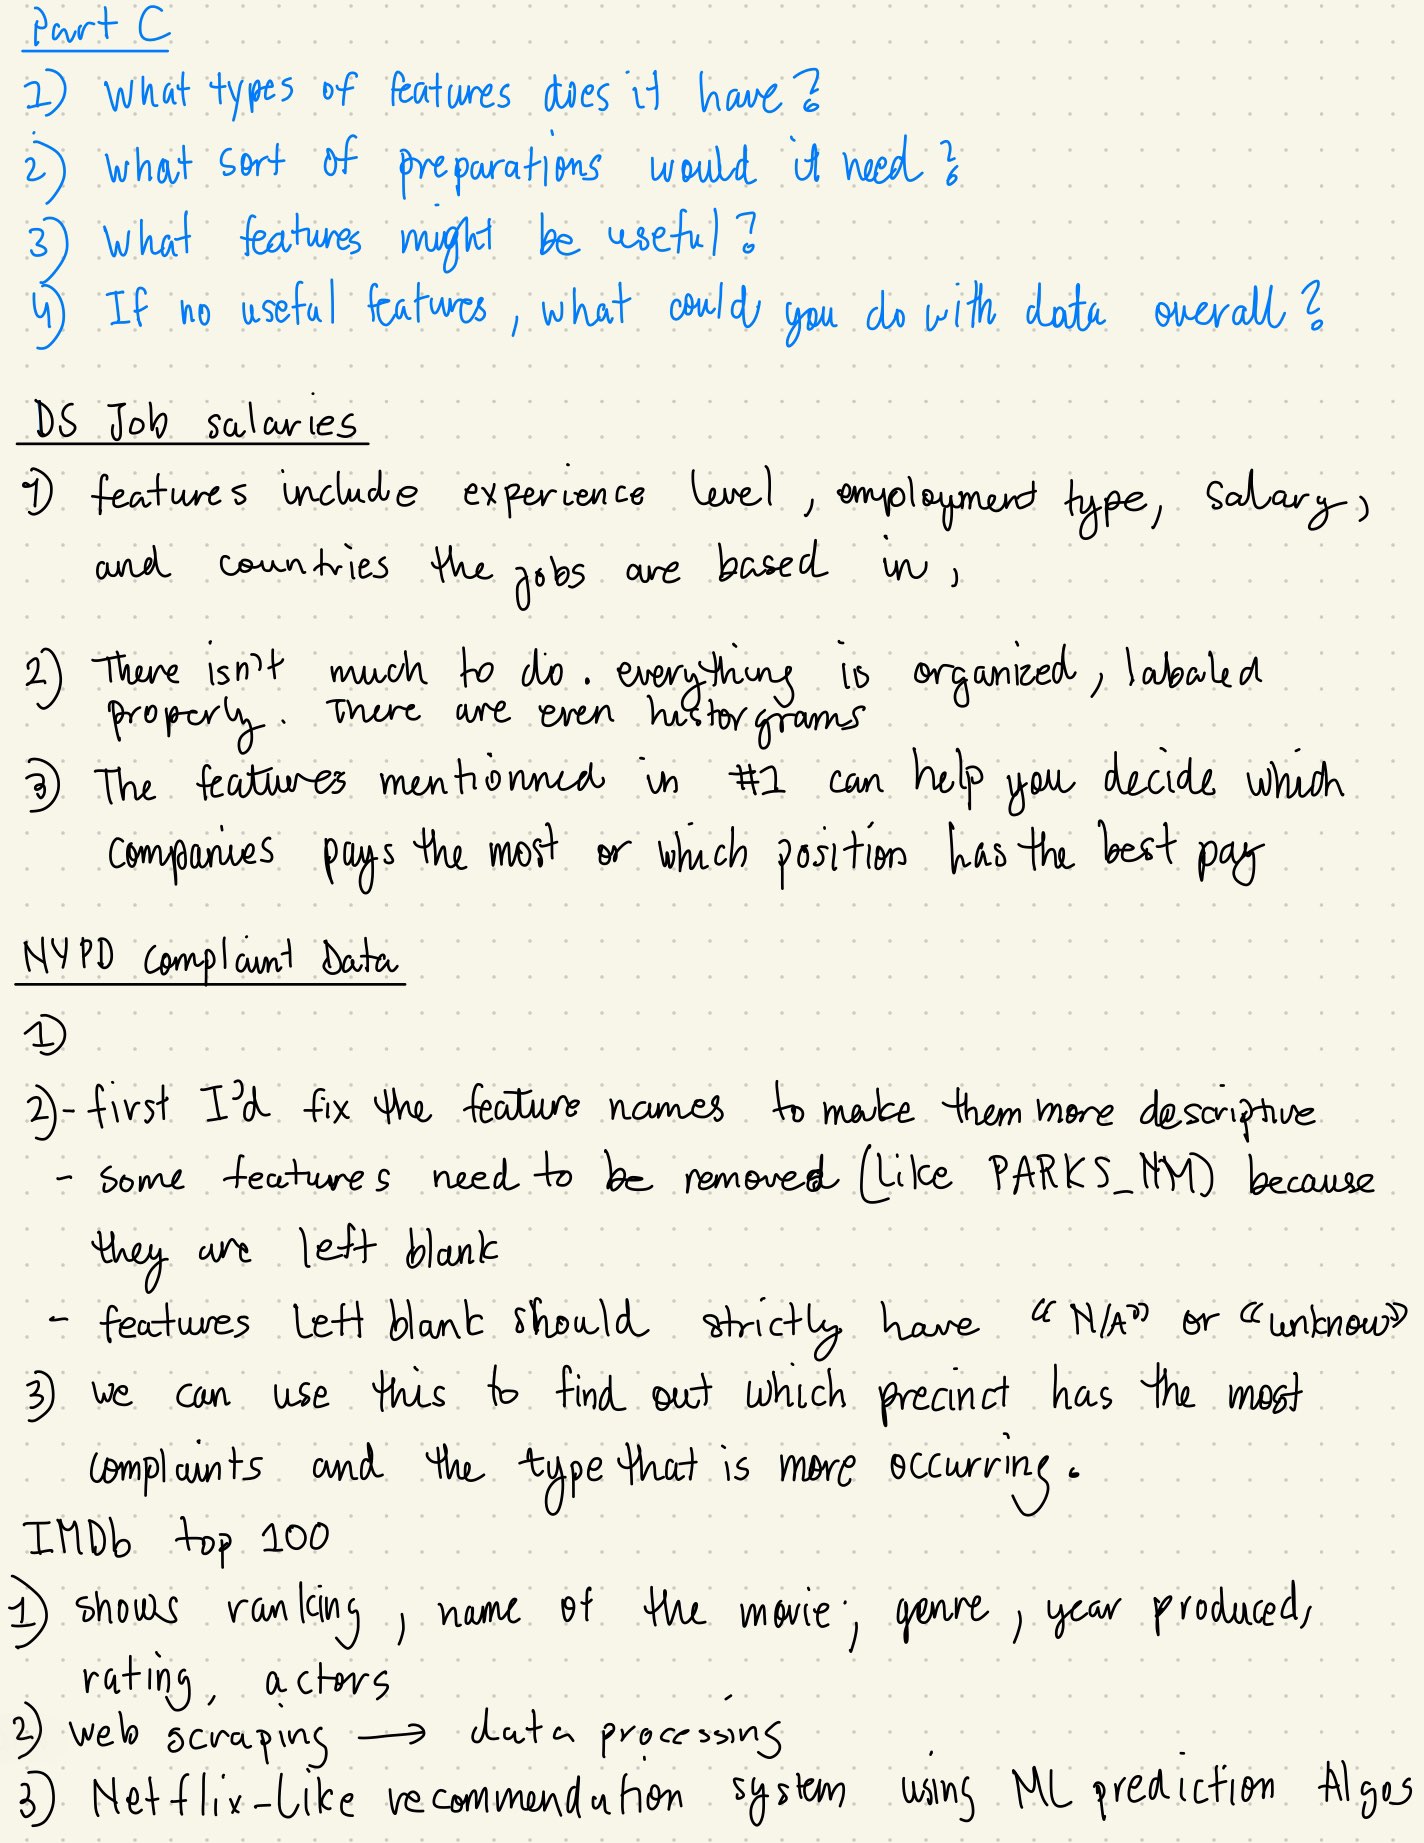 Part C
1) What types of features does it have?
2) What sort of preparations would it need?
3) What features might be useful?
4) If no useful features, what could you do with data overall?
DS Job salaries
1) features include experience level, employment type, salary,
and countries the jobs are based in,
2) There isn't much to do. everything is organized, labaled
properly. There are even historgrams
3) The features mentionned in #1 can help you decide which
companies pays the most or which position has the best pay
NYPD Complaint Data
1)
2)- first I'd fix the feature names to make them more descriptive
- some features need to be removed (like PARKS_NM) because
they are left blank
- features left blank should strictly have "N/A" or "unknow"
3) we can use this to find out which precinct has the most
complaints and the type that is more occurring.
IMDb top 100
1) shows ranking, name of the movie, genre, year produced,
rating, actors
2) web scraping → data processing
3) Netflix-like recommendation system using ML prediction Algos